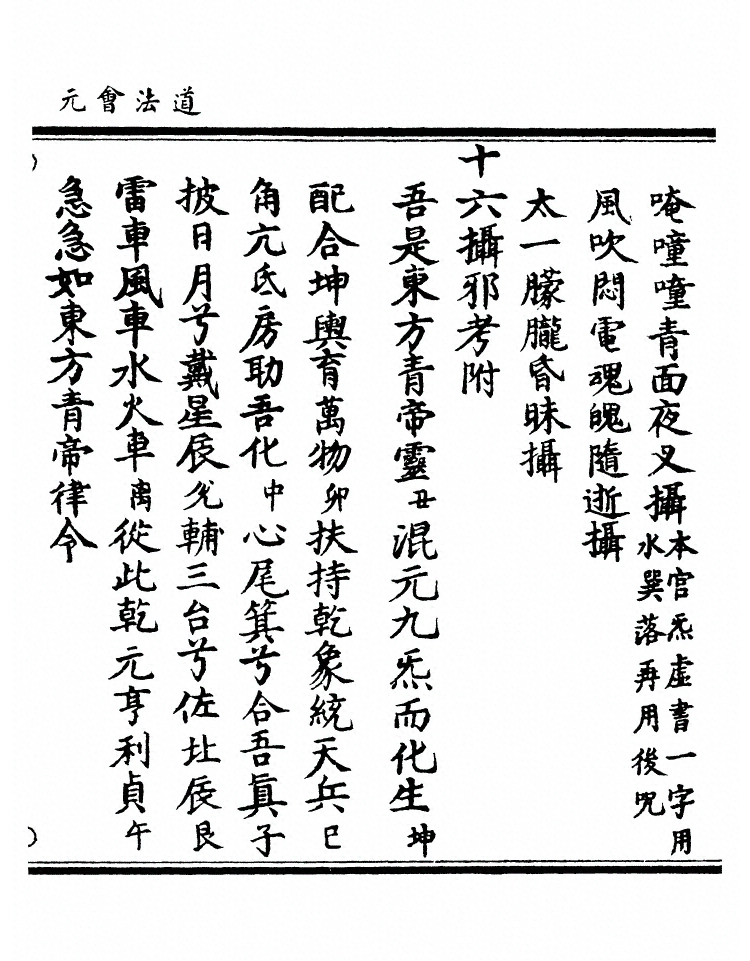 道法會元
唵㘈㘈青面夜叉攝本宮炁虛書一字用水巽落再用後咒
風吹悶電魂魄隨逝攝
太一朦朧昏昧攝
十六攝邪考附
吾是東方青帝靈丑混元九炁而化生坤
配合坤輿育萬物卯扶持乾象統天兵巳
角亢氐房助吾化中心尾箕兮合吾眞子
披日月兮戴星辰兊輔三台兮佐北辰艮
雷車風車水火車离從此乾元亨利貞午
急急如東方青帝律令